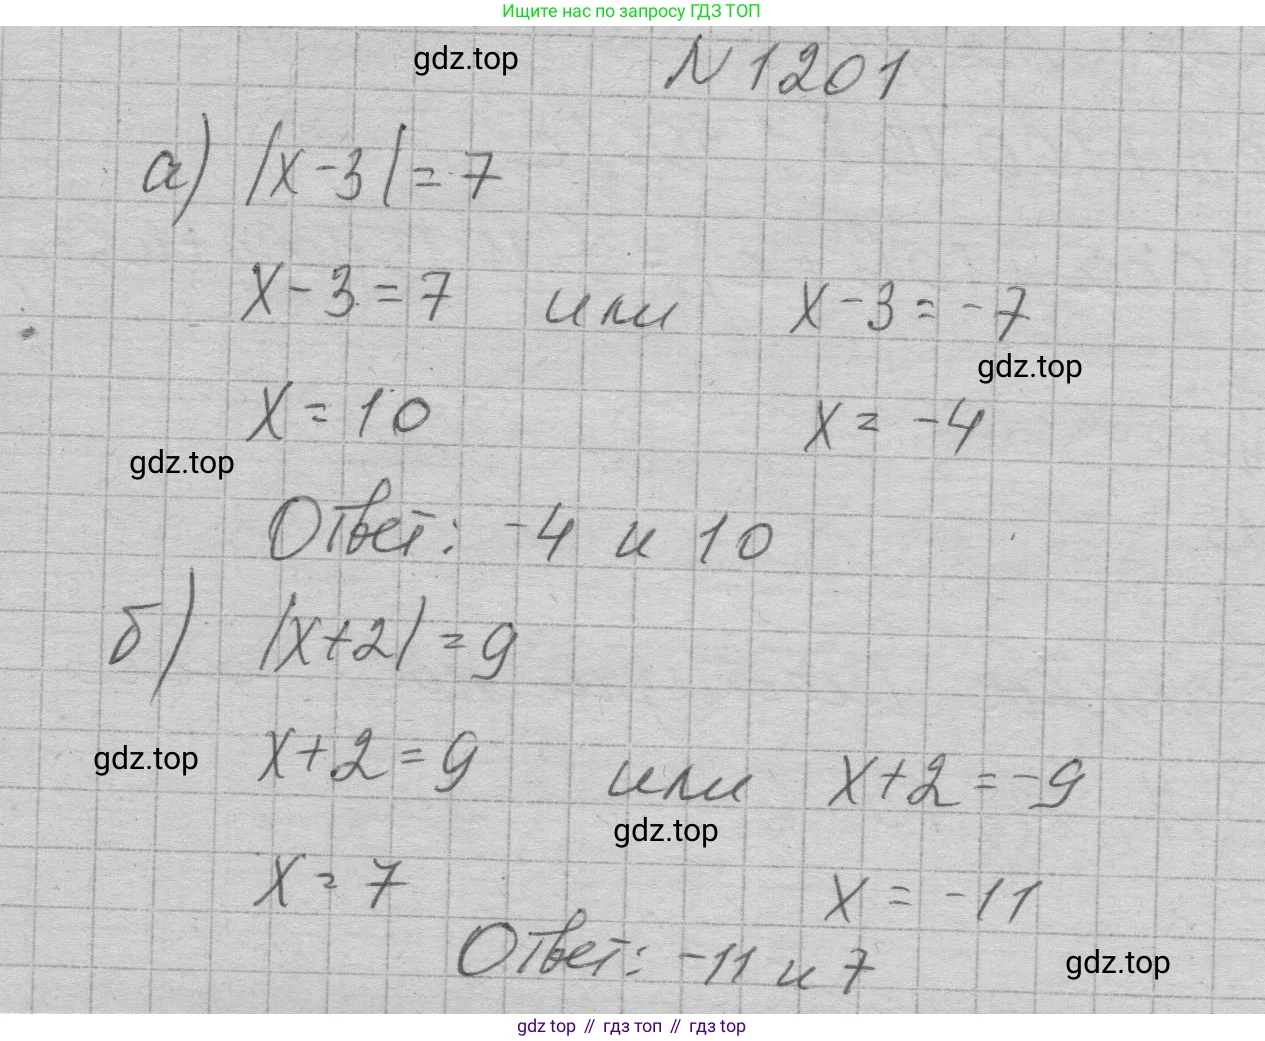 Ищите нас по запросу ГДЗ ТОП
gdz.top
N 1201
а) |x-3|=7
x-3=7 или x-3=-7
gdz.top
x=10 x=-4
gdz.top
Ответ: -4 и 10
б) |x+2|=9
gdz.top
x+2=9 или x+2=-9
gdz.top
x=7 x=-11
Ответ: -11 и 7
gdz.top
gdz top // гдз топ // гдз top